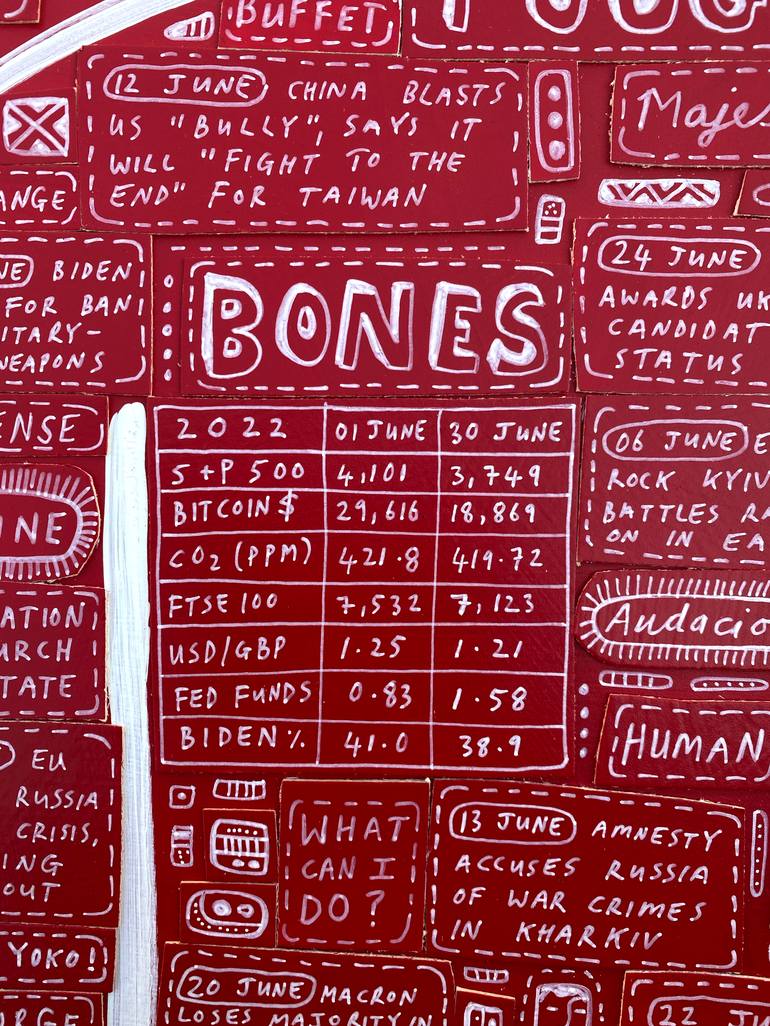 BUFFET
12 JUNE CHINA BLASTS
US "BULLY", SAYS IT
WILL "FIGHT TO THE
END" FOR TAIWAN
Majes
ANGE
NE BIDEN
FOR BAN
ITARY-
WEAPONS
BONES
24 JUNE
AWARDS UK
CANDIDAT
STATUS
ENSE
INE
2022 01 JUNE 30 JUNE
S+P 500 4,101 3,749
BITCOIN $ 29,616 18,869
CO2 (PPM) 421.8 419.72
FTSE 100 7,532 7,123
USD/GBP 1.25 1.21
FED FUNDS 0.83 1.58
BIDEN % 41.0 38.9
06 JUNE E
ROCK KYIV
BATTLES RA
ON IN EA
Audacio
HUMAN
ATION
URCH
TATE
EU
RUSSIA
CRISIS,
ING
OUT
YOKO!
WHAT
CAN I
DO?
13 JUNE AMNESTY
ACCUSES RUSSIA
OF WAR CRIMES
IN KHARKIV
20 JUNE MACRON
LOSES MAJORITY IN
22 JUNE